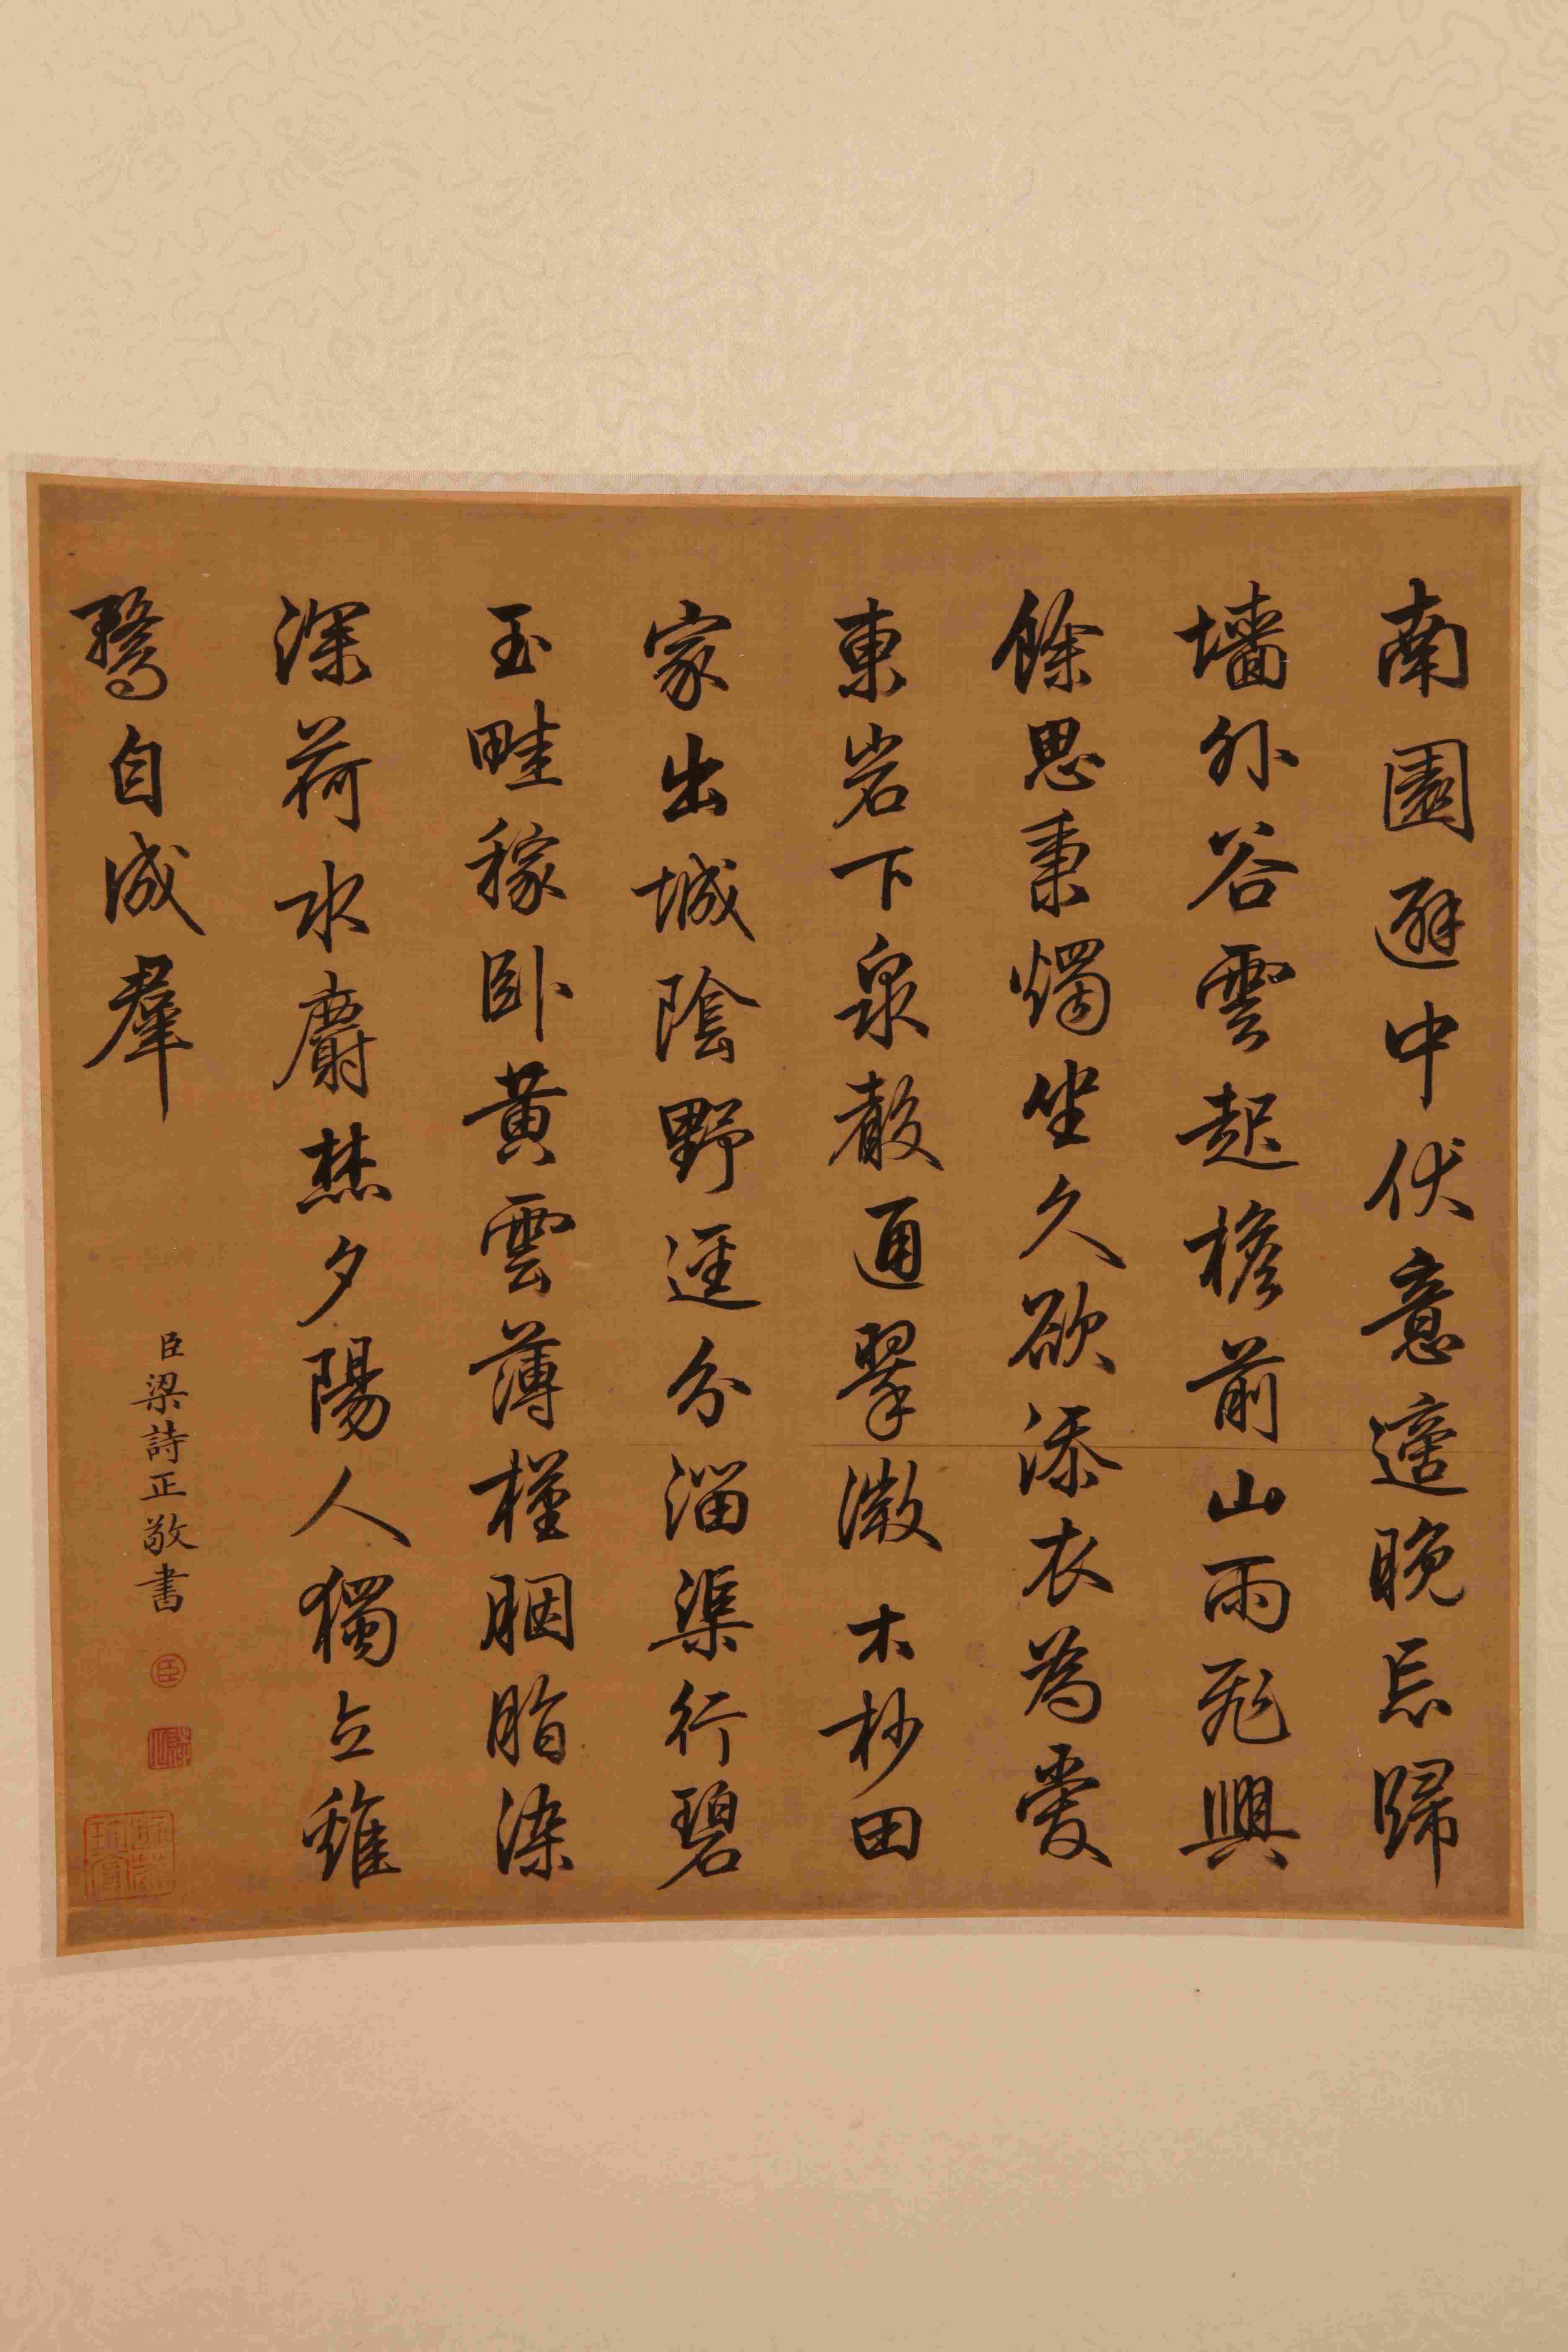 南園避中伏意適晚忘歸
墻外谷雲起檐前山雨飛興
餘思秉燭坐久欲添衣為愛
東岩下泉聲通翠微木杪田
家出城陰野逕分淄渠行碧
玉畦稼卧黃雲薄槿胭脂染
深荷水麝焚夕陽人獨立雞
鶩自成羣
臣梁詩正敬書
臣
詩正